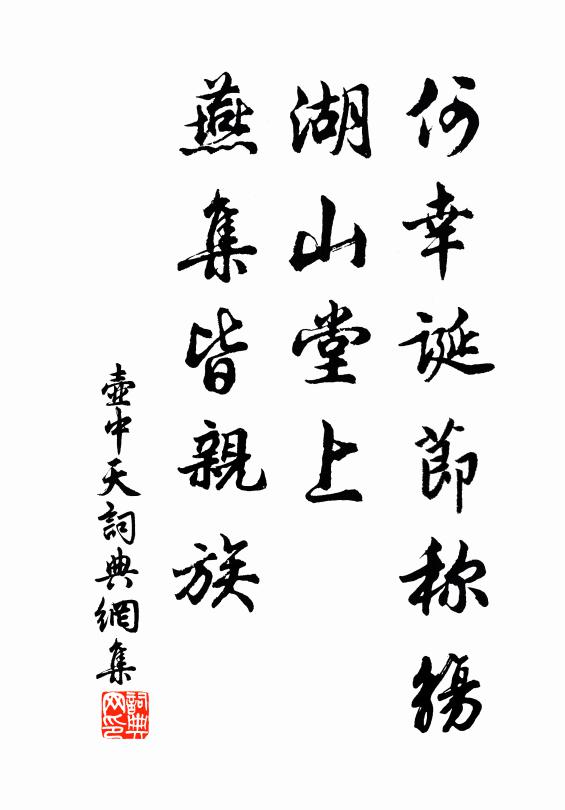 何幸誕節称觴
湖山堂上
燕集皆親族
壺中天詞典網集
詞典网印